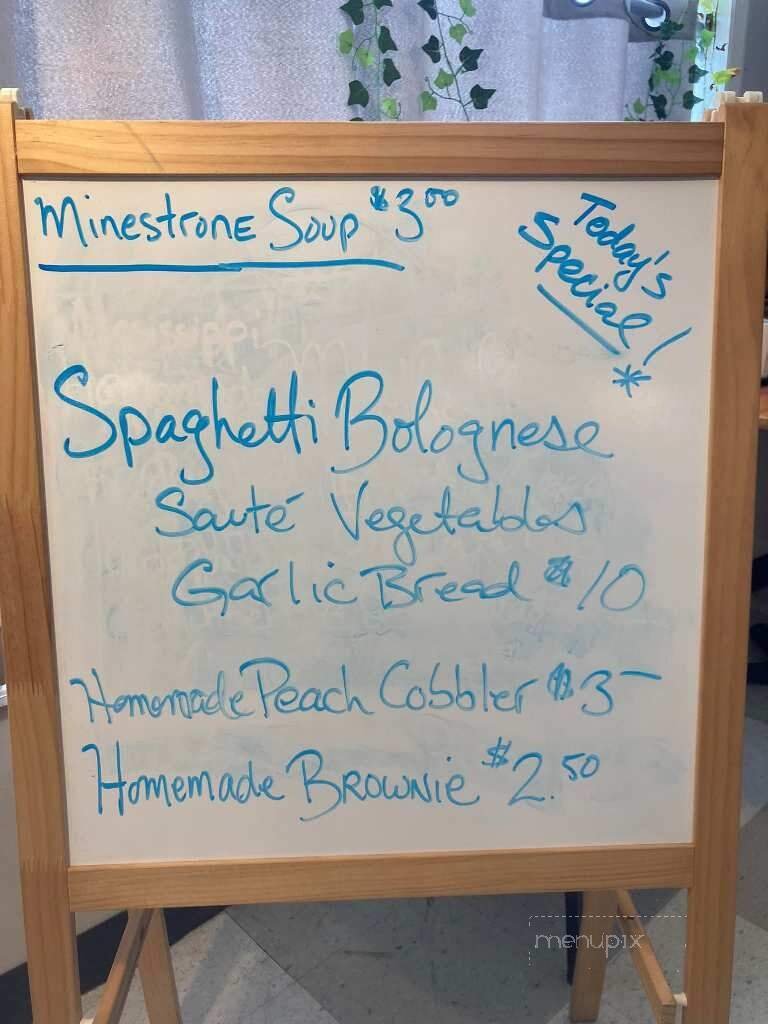 Minestrone Soup $3.00
Today's
Special!
*
Spaghetti Bolognese
Sauté Vegetables
Garlic Bread $10
Homemade Peach Cobbler $3-
Homemade Brownie $2.50
menupix